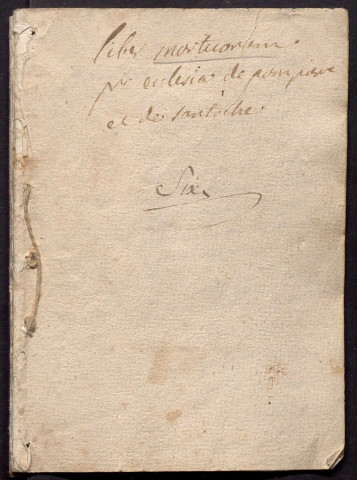 liber mortuorum.
pr ecclesia de pompogne
et de santoche.
Six